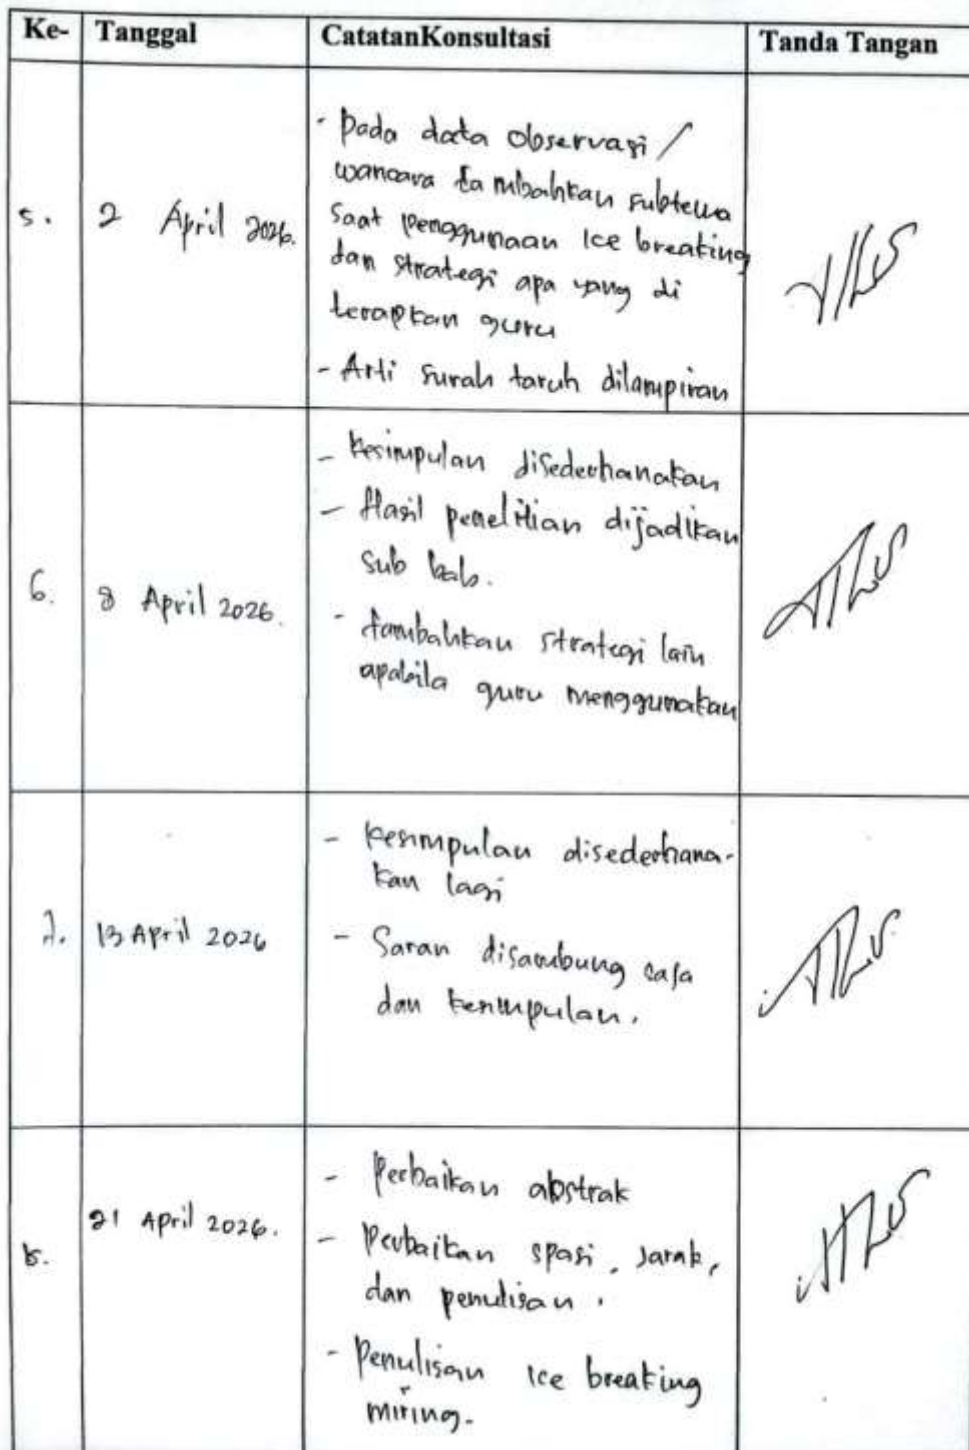 Ke- Tanggal CatatanKonsultasi Tanda Tangan
5. 2 April 2026.
- Pada data observasi /
wancara tambahkan subtema
saat penggunaan Ice breaking
dan strategi apa yang di
terapkan guru
- Arti surah taruh dilampiran
6. 8 April 2026.
- Kesimpulan disederhanakan
- Hasil penelitian dijadikan
sub bab.
- tambahkan strategi lain
apabila guru menggunakan
7. 13 April 2026
- Kesimpulan disederhana-
kan lagi
- Saran disambung saja
dan kesimpulan.
8. 21 April 2026.
- Perbaikan abstrak
- Perbaikan spasi, Jarak,
dan penulisan.
- Penulisan Ice breaking
miring.